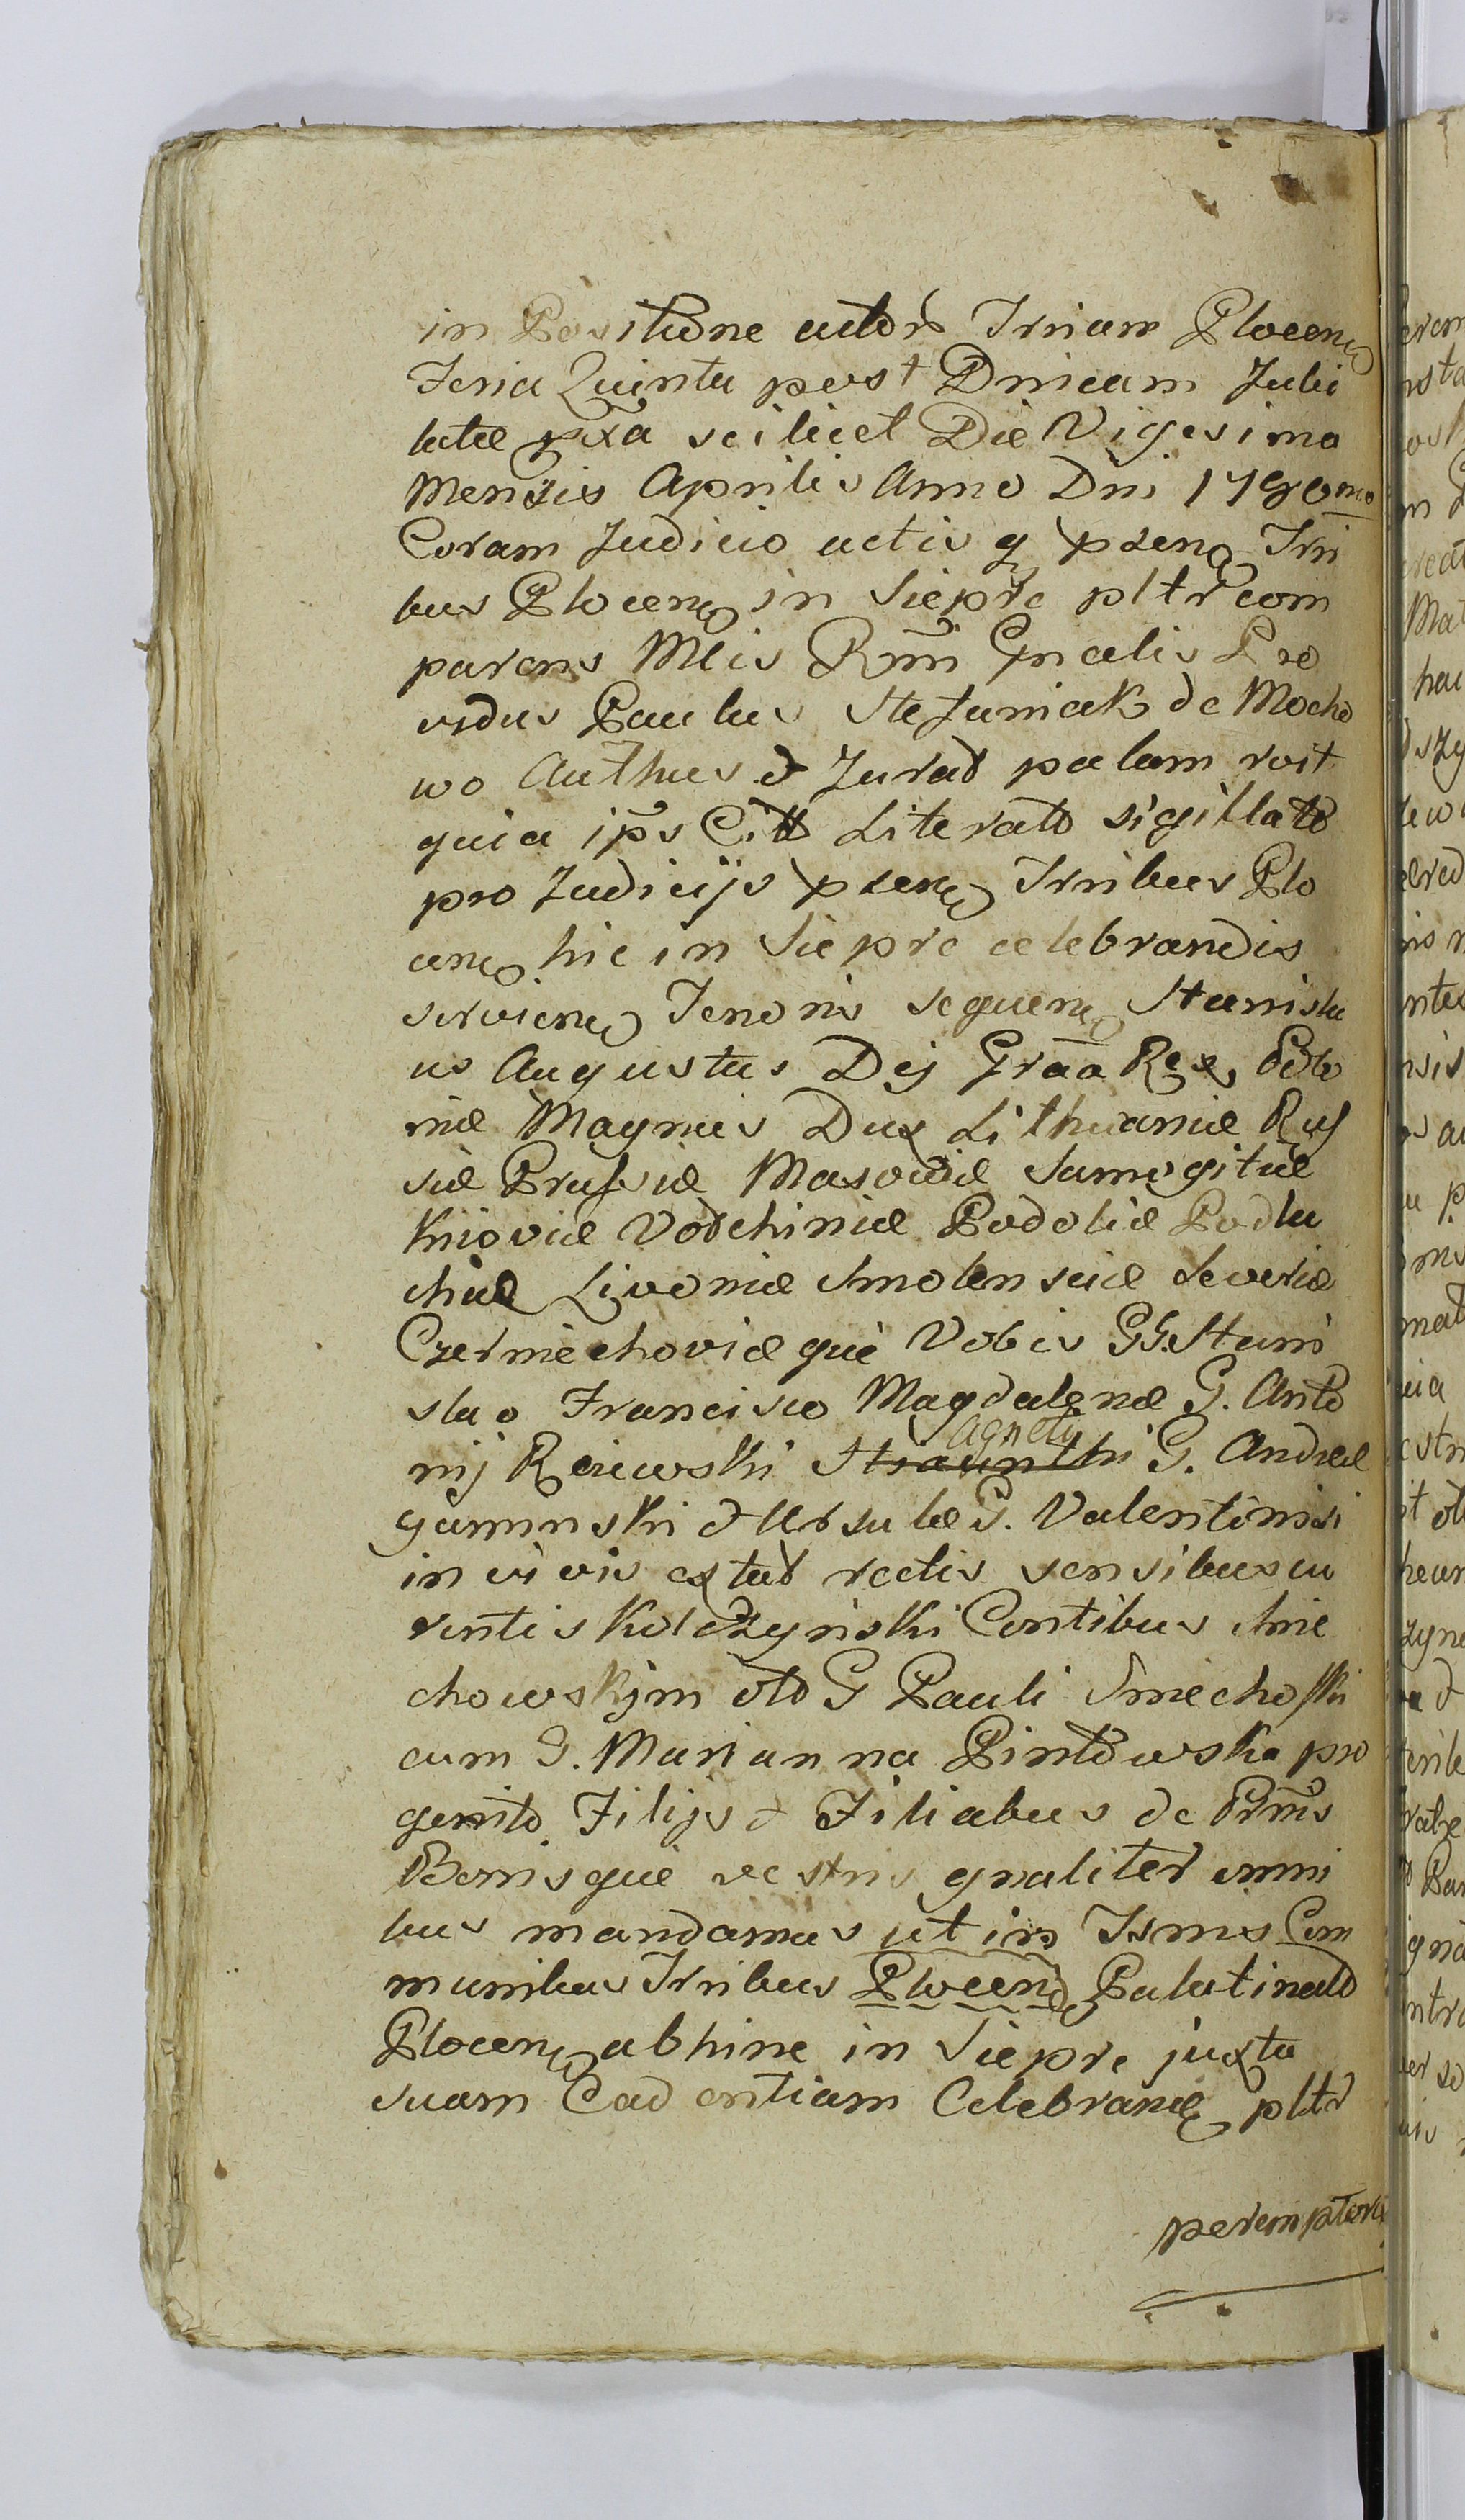 in Positione actor Trium Plocen
Feria Quinta post Dnicam Jubi
latæ pxa scilicet Die Vigesima
Mensis Aprilis Anno Dni 1780mo
Coram Judicio actis q psen Trri
bus Plocen in Sieprc pltr com
parens Mlis Rnni Gnalis Pro
vidus Paulus Stefaniak de Mocho
wo Authus & Jurat palam roit
quia ips Citt Literatt sigillatt
pro Judicijs psen Trribus Plo
cen hic in Sieprc celebrandis
servien Tenoris sequen Stanisla
us Augustus Dej Graa Rex Polo
niæ Magnus Dux Lithuaniæ Rus
siæ Prussiæ Masoviæ Samogitiæ
Kijoviæ Volhiniæ Podoliæ Podla
chiæ Livoniæ Smolensciæ Severiæ
Czerniechoviæ que Vobis GG. Stani
slao Francisco Magdalenæ G. Anto
nij Reiewski Agneti G. Andreæ
Gaminski & Ursulæ G. Valentinisi
in vivis extat rectis sensibus cu
rentis Kolczynski Contibus Smie
chowskim olt G Pauli Smiechoski
cum G. Marianna Pintowska pro
genito Filijs & Filiabus de Prnis
Bonisque vestris gnaliter omni
bus mandamus ut in Trmis Com
munibus Trribus Plocen Palatinatt
Plocen abhinc in Sieprc juxta
suam Cadentiam Celebrand pltr
peremptorie